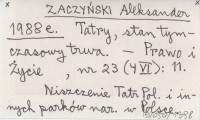 ZACZYŃSKI Aleksander
1988e. Tatry, stan tym-
czasowy trwa. – Prawo i
Życie, nr 23 (4 VI): 11.
Niszczenie Tatr Pol. i in-
nych parków nar. w Polsce.